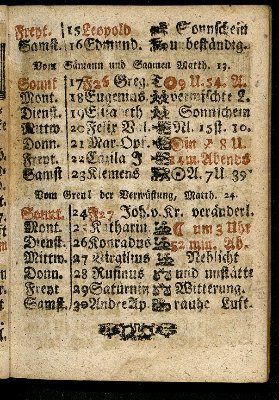 Freyt. 15 Leopold Sonnschein
Samst. 16 Edmund. unbeständig.
Vom Sämann und Saamen Matth. 13.
Sonnt 17 F26 Greg. T. 9 U. 54. A.
Mont. 18 Eugenius vermischte L.
Dienst. 19 Elisabeth Sonnschein
Mittw. 20 Felix Val. Nl. 15st. 10.
Donn. 21 Mar. Opf. in 8 U.
Freyt. 22 Cäcilia J. 24 m. Abends
Samst 23 Klemens A. 7 U 39
Vom Greul der Verwüstung, Matth. 24.
Sonnt. 24 F27 Joh. v. Kr. veränderl.
Mont. 25 Katharin um 3 Uhr
Dienst. 26 Konradus 52 min. Ab.
Mittw. 27 Virgilius Neblicht
Donn. 28 Rufinus und unstätte
Freyt 29 Saturnin Witterung.
Samst. 30 Andre Ap. rauhe Luft.